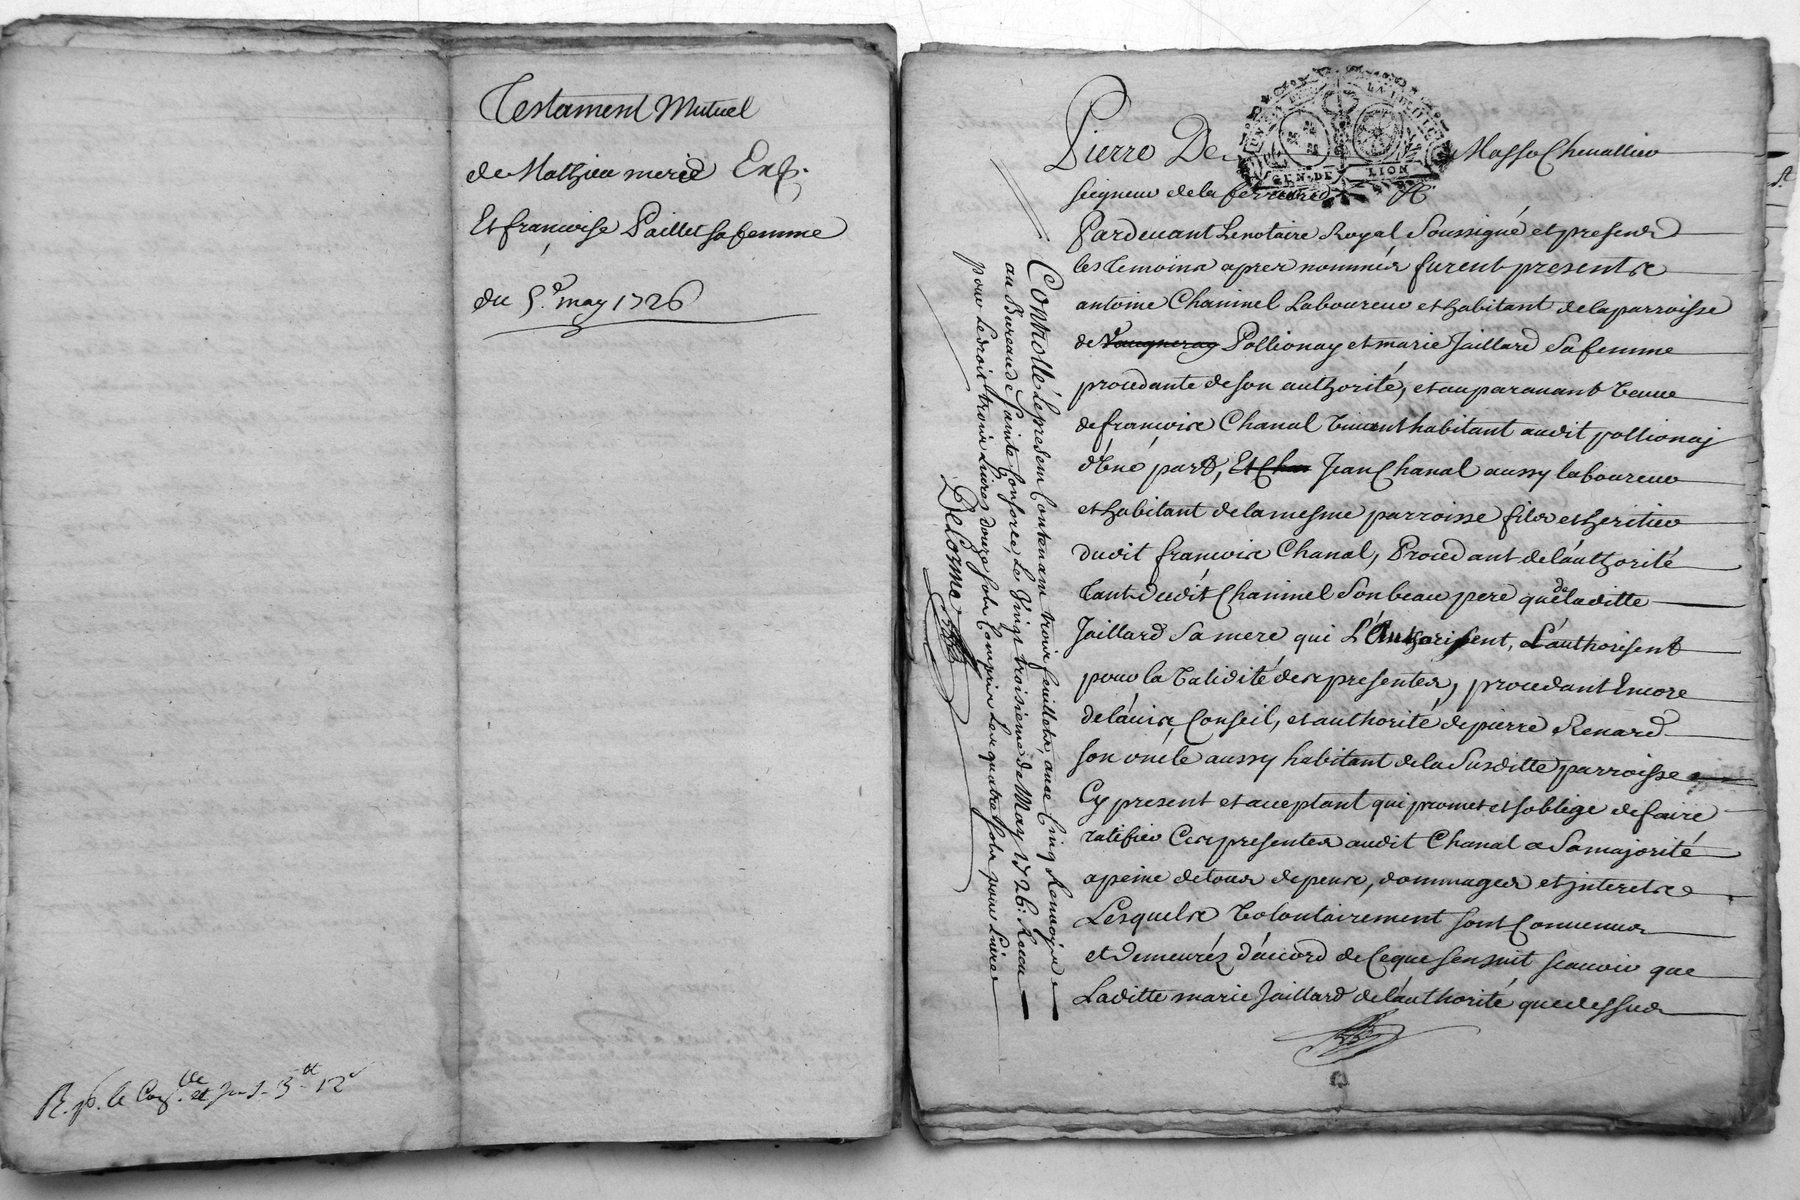 Testament Mutuel
de Mathieu merie Exp.
Et francoise Paillet sa femme
du 5.e may 1726
R. p. le Con.lle et 3tt 12s
Pierre De Masso Chevallier
seigneur de la ferriere &c
GEN. DE LION
Pardevant Le notaire Royal Soussigné et presens
les temoins apres nommés furent presents
antoine Chaninel Laboureur et habitant de la parroisse
de Vaugneray Pollionay et marie Jaillard sa femme
procedante de son authorité, et auparavant veuve
de francois Chanal vivant habitant audit pollionay
d'une part, Et Chan Jean Chanal aussy laboureur
et habitant de la mesme parroisse fils et heritier
dudit francois Chanal, Procedant de l'authorité
tant dudit Chaninel son beau pere que de laditte
Jaillard sa mere qui L'Authorisent, L'authorisent
pour la validité des presentes, procedant Encore
de l'avis, Conseil, et authorité de pierre Renard
son oncle aussy habitant de la Susditte parroisse
Cy present et acceptant qui promet et s'oblige de faire
ratifier Ces presentes audit Chanal a Sa majorité
a peine de tous depens, dommages et interets
Lesquels volontairement sont Convenus
et demeurés d'accord de Ce que sensuit scavoir que
Laditte marie Jaillard de l'authorité que dessus
Controllé Le present Contenant trois feuillets, avec Cinq Renvoys
au Bureau de Sainte Consorce, Le Vingt troisieme de May 1726. Receu
pour Le droit trois Livres douze sols Compris Les quatre sols pour Livre
DeLorme